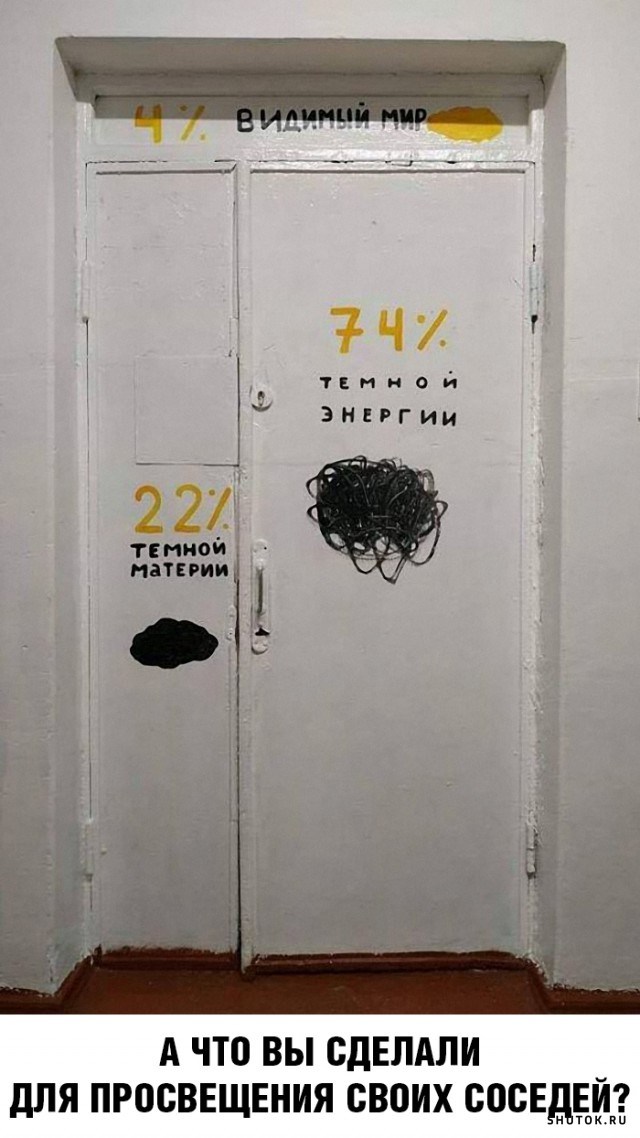 4% ВИДИМЫЙ МИР
74%
ТЕМНОЙ
ЭНЕРГИИ
22%
ТЕМНОЙ
МаТЕРИИ
А ЧТО ВЫ СДЕЛАЛИ
ДЛЯ ПРОСВЕЩЕНИЯ СВОИХ СОСЕДЕЙ?
SHOTOK.RU